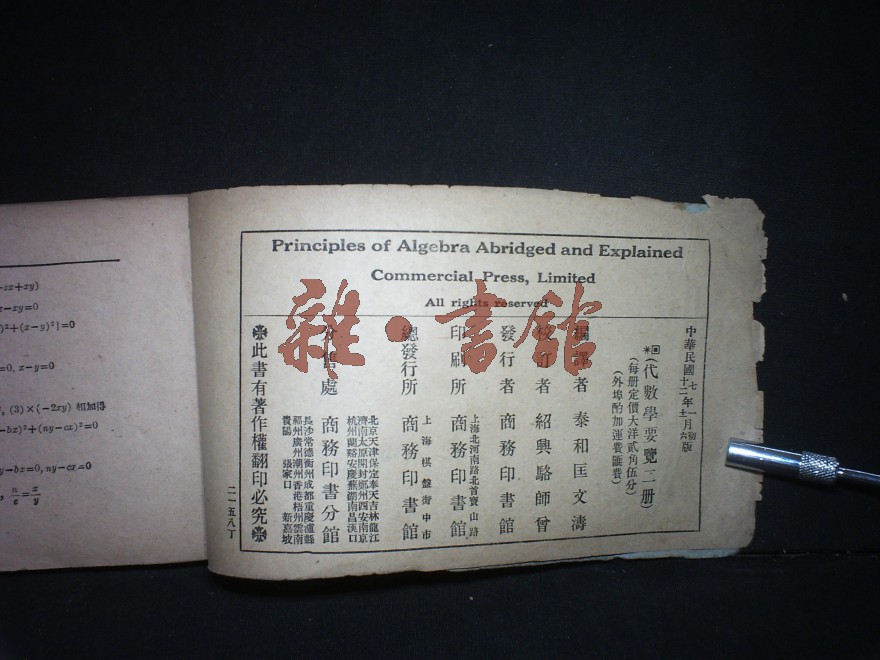 -zx+xy)
x-xy=0
)²+(x-y)²]=0
=0, x-y=0
, (3)×(-2xy) 相加得
-bx)²+(ny-cx)²=0
y-bx=0, ny-cx=0
, n/c=x/y
Principles of Algebra Abridged and Explained
Commercial Press, Limited
All rights reserved
雜·書館
中華民國七年一月初版
十二年十一月六版
(代數學要覽二冊)
(每冊定價大洋貳角伍分)
(外埠酌加運費匯費)
編譯者 泰和匡文濤
校訂者 紹興駱師曾
發行者 商務印書館
印刷所 上海北河南路北首寶山路 商務印書館
總發行所 上海棋盤街中市 商務印書館
分售處 商務印書分館
北京天津保定奉天吉林龍江
濟南太原開封鄭州西安南京
杭州蘭谿安慶蕪湖南昌漢口
長沙常德衡州成都重慶瀘縣
福州廣州潮州香港梧州雲南
貴陽 張家口 新嘉坡
此書有著作權翻印必究
二一五八丁